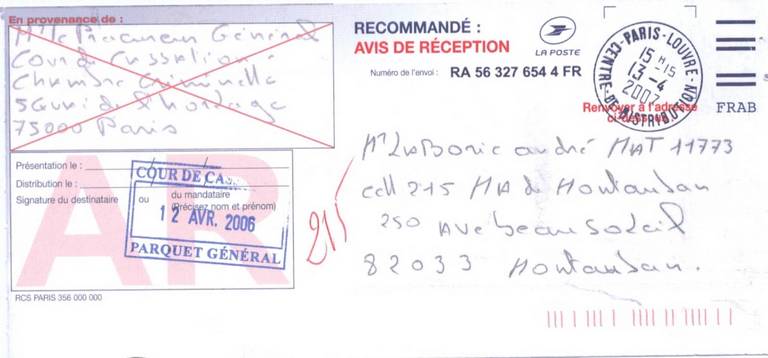 En provenance de :
Mr le Procureur Général
Cour de Cassation
Chambre Criminelle
5 Quai de l'horloge
75000 Paris
RECOMMANDÉ :
AVIS DE RÉCEPTION
LA POSTE
Numéro de l'envoi : RA 56 327 654 4 FR
CENTRE-DE-DISTRIBUTION PARIS-LOUVRE
15 H 15
13-4
2007
Renvoyer à l'adresse
ci-dessous
FRAB
Présentation le :
Distribution le :
Signature du destinataire
ou
du mandataire
(Précisez nom et prénom)
COUR DE CAS
12 AVR. 2006
PARQUET GÉNÉRAL
AR
215
Mr LABORIE andré MAT 11773
cell 215 MA de Montauban
250 AVe beau Soleil
82033 Montauban.
RCS PARIS 356 000 000